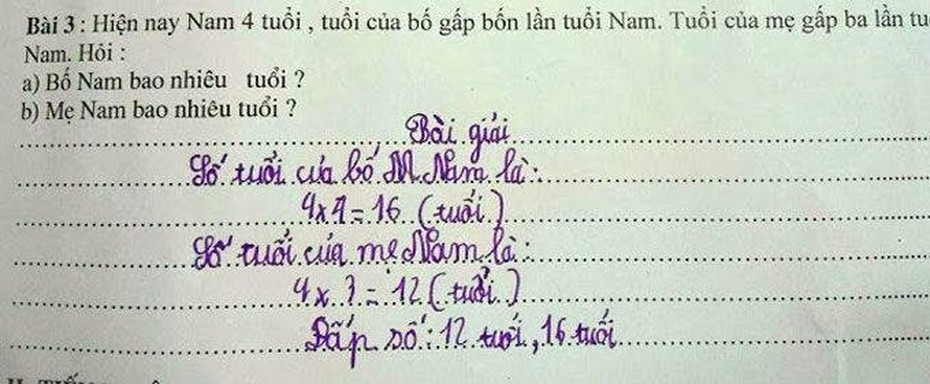 Bài 3 : Hiện nay Nam 4 tuổi , tuổi của bố gấp bốn lần tuổi Nam. Tuổi của mẹ gấp ba lần tu
Nam. Hỏi :
a) Bố Nam bao nhiêu tuổi ?
b) Mẹ Nam bao nhiêu tuổi ?
Bài giải
Số tuổi của bố M Nam là :
4 x 4 = 16 (tuổi)
Số tuổi của mẹ Nam là :
4 x 3 = 12 (tuổi)
Đấp số : 12 tuổi, 16 tuổi